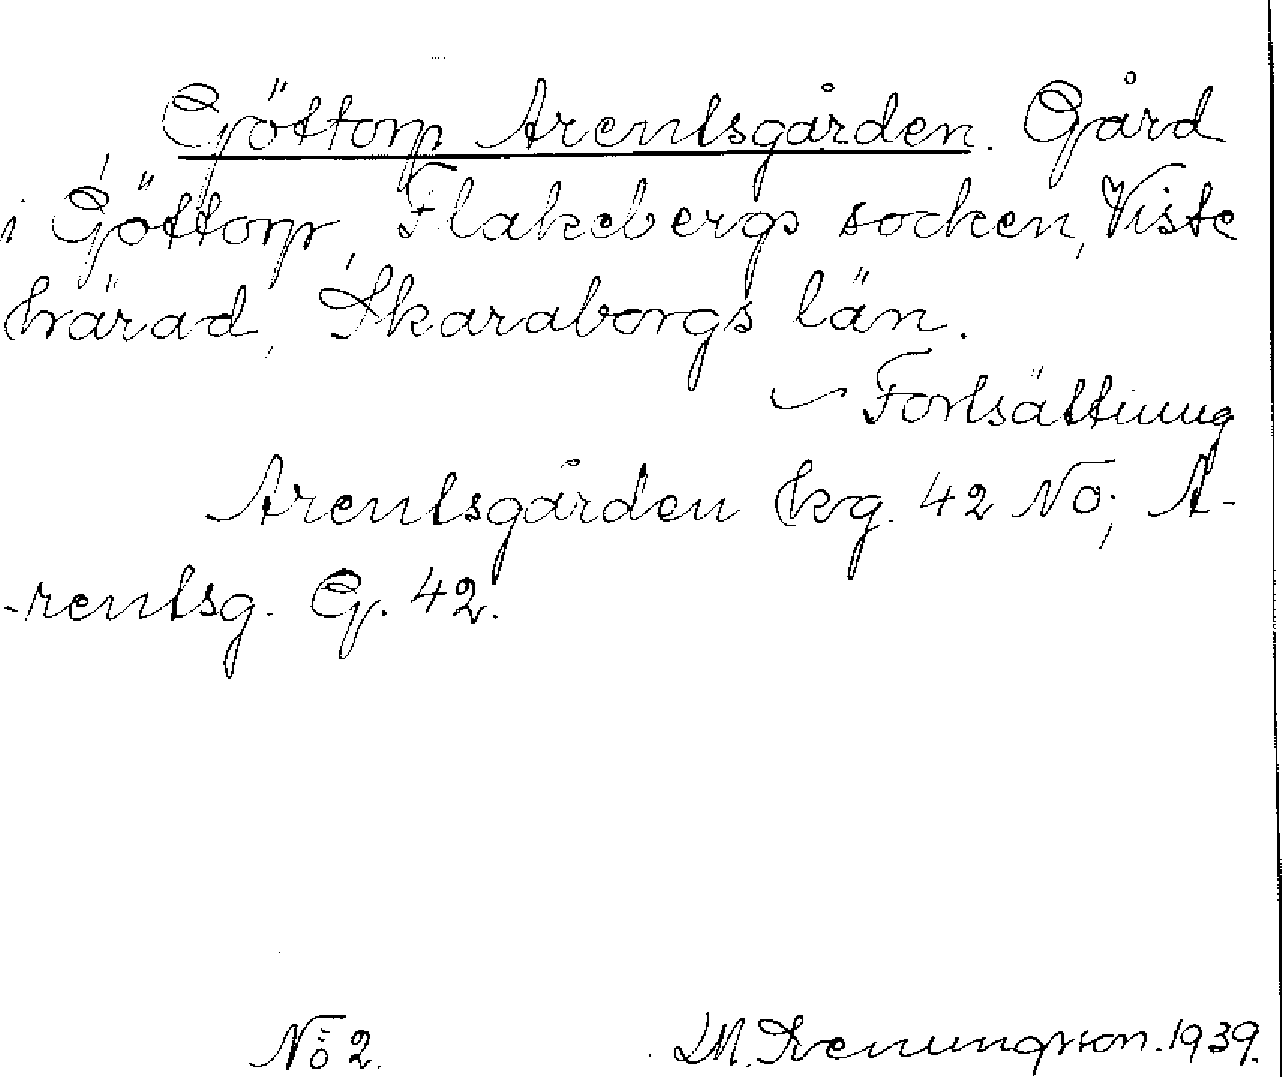 Göttorp Arentsgården. Gård
i Göttorp, Flakebergs socken, Viste
härad, Skaraborgs län.
Fortsättning
Arentsgården hg. 42 NO; A-
-rentsg. G. 42.
No 2. 1939.